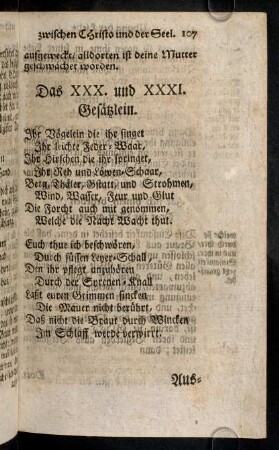 zwischen CHristo und der Seel. 107
aufgeweckt/ alldorten ist deine Mutter
geschwächet worden.
Das XXX. und XXXI.
Gesätzlein.
Ihr Vögelein die ihr singet
Ihr leichte Feder-Waar,
Ihr Hirschen die ihr springet,
Ihr Reh und Löwen-Schaar,
Berg, Thäler, Gstatt, und Strohmen,
Wind, Wasser, Feur und Glut
Die Forcht auch mit genommen,
Welche die Nacht Wacht thut.
Euch thue ich beschwören,
Durch süssen Leyer-Schall,
Den ihr pflegt anzuhören
Durch der Syrenen-Knall
Laßt euren Grimmen sincken
Die Mauer nicht berührt,
Daß nicht die Braut durch Wincken
Im Schlaff werde verwirrt.
Aus-